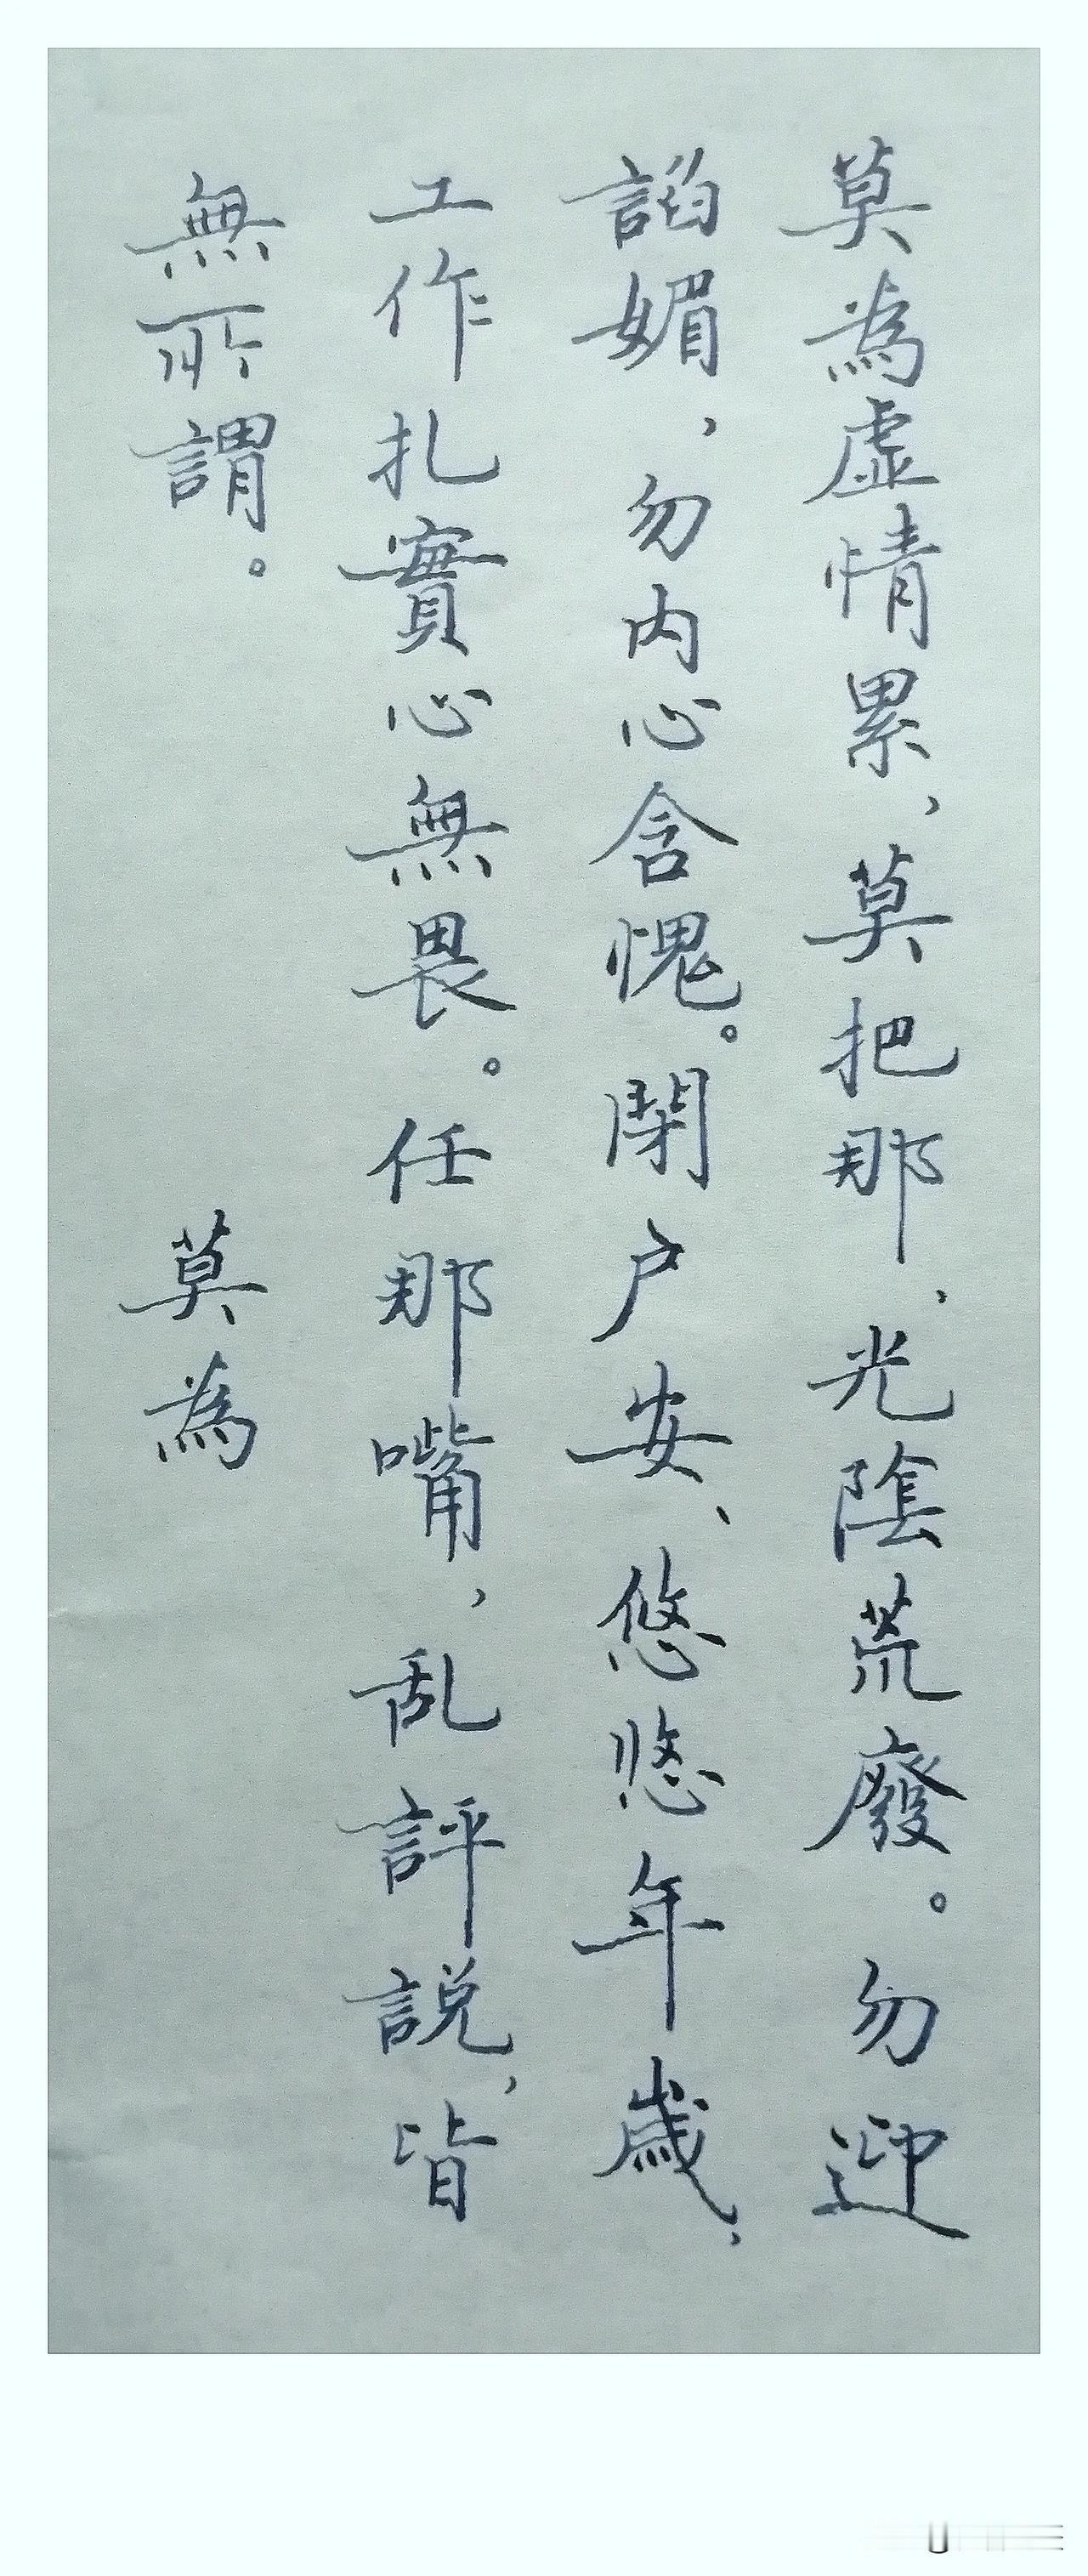 莫為虛情累，莫把那、光陰荒廢。勿迎
諂媚，勿内心含愧。閉户安、悠悠年歲，
工作扎實心無畏。任那嘴，乱評説，皆
無所謂。 莫為